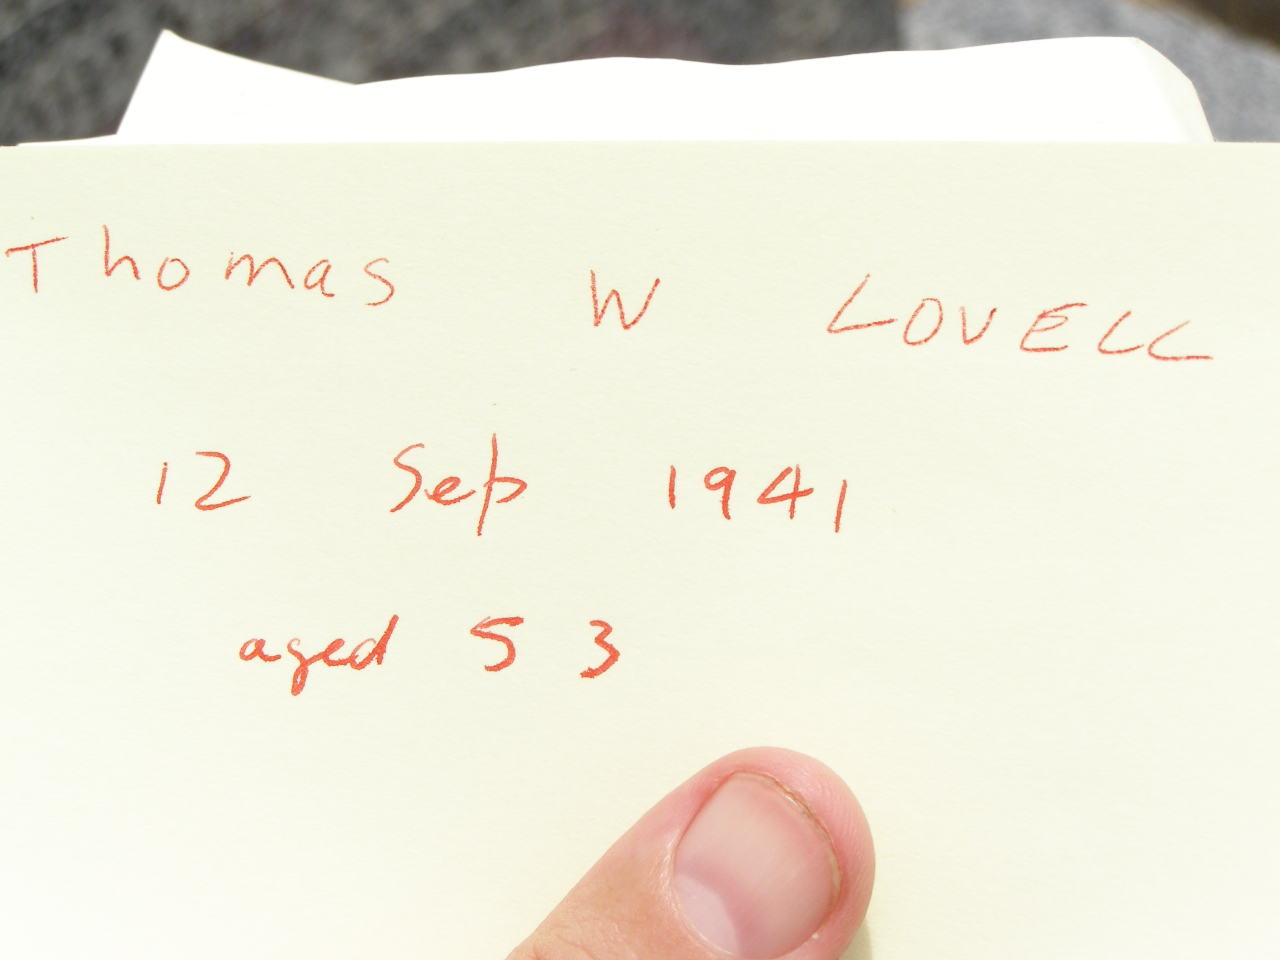 Thomas W LOVELL
12 Sep 1941
aged 53